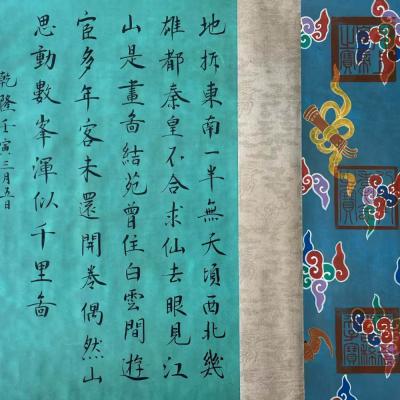 地拆東南一半無天頃西北幾
雄都秦皇不合求仙去眼見江
山是畫啚結苑曾住白雲間遊
宦多年客未還開卷偶然山
思動數峯渾似千里啚
乾隆壬寅三月五日